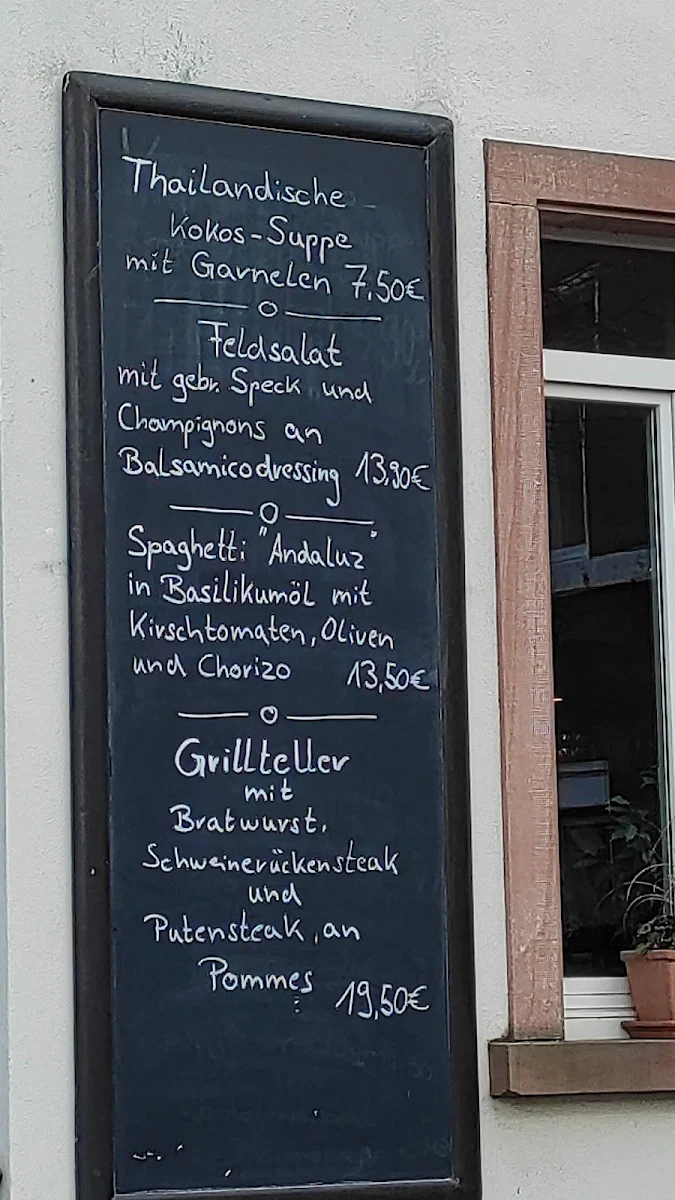 Thailandische
Kokos-Suppe
mit Garnelen 7,50€
Feldsalat
mit gebr. Speck und
Champignons an
Balsamicodressing 13,90€
Spaghetti "Andaluz"
in Basilikumöl mit
Kirschtomaten, Oliven
und Chorizo 13,50€
Grillteller
mit
Bratwurst,
Schweinerückensteak
und
Putensteak, an
Pommes 19,50€